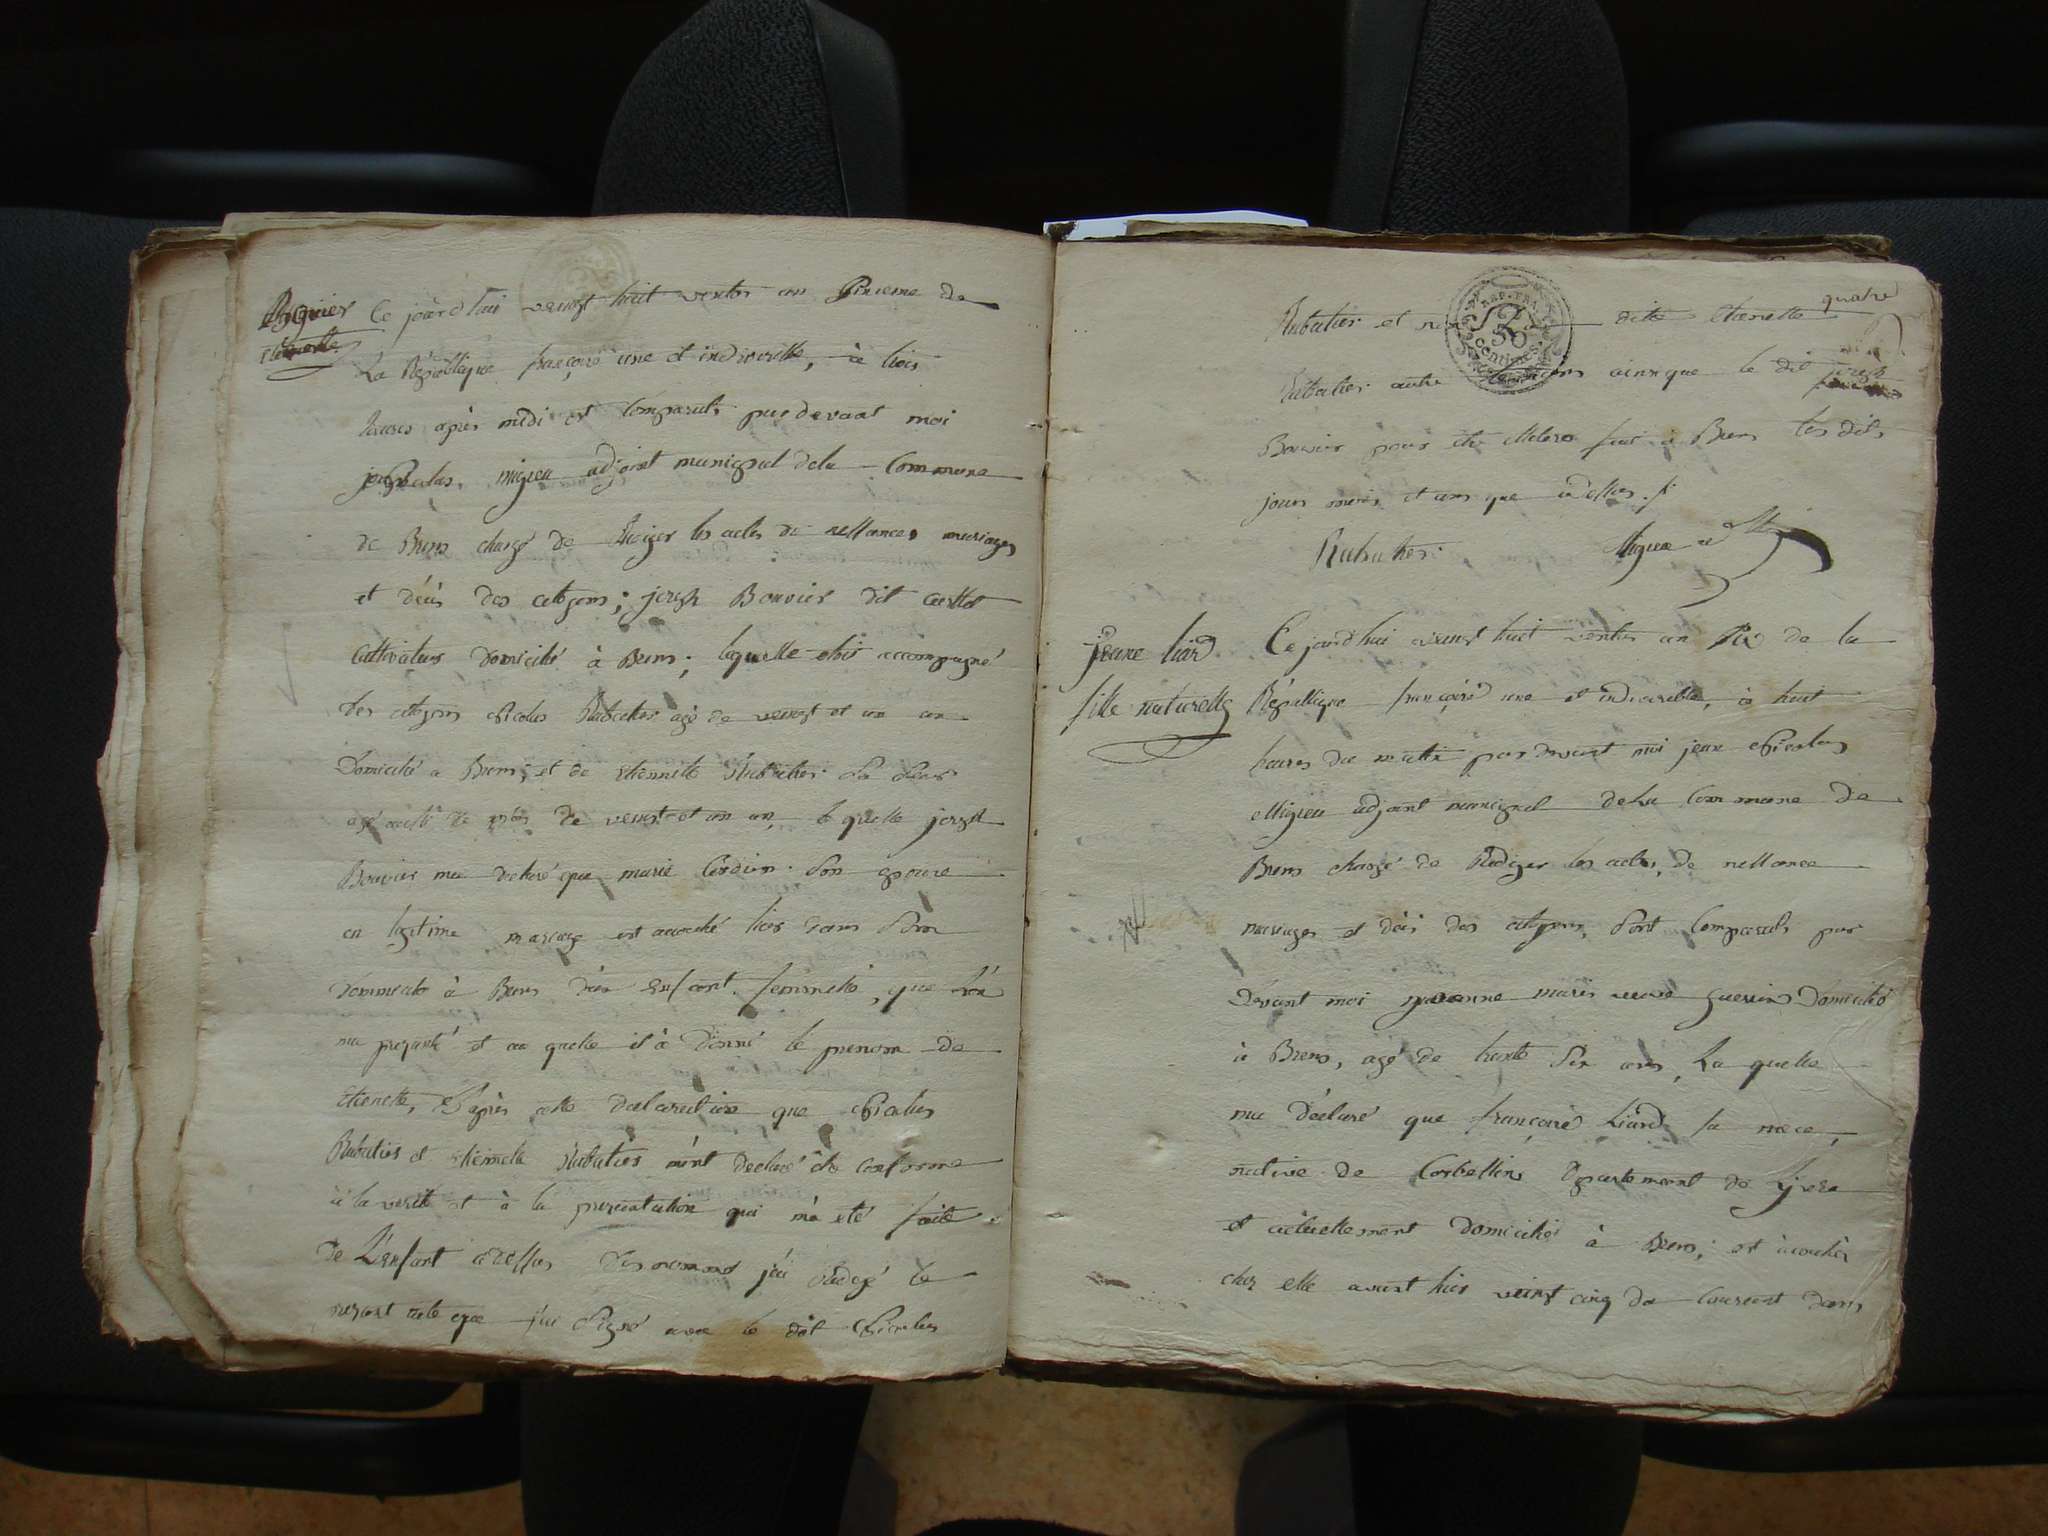 Ce jourd'hui veingt huit ventos an sixieme de
La République françoise une et indivisible, à trois
heures après midi est comparut par devant moi
jean nicolas migieu adjoint municipal de la Commune
de Brens chargé de Rédiger les actes de nessances mariages
et décès des citoyens; joseph Bouvier dit
Cultivateur domicilié à Brens; lequelle etois accompagné
des citoyens nicolas Rubatier agé de veingt et un an
Domicilié a Brens, et de etiennette Rubatier sa seur
agé aussi de de veingt et un an, le quelle joseph
Bouvier ma declaré que marie son epouse
en legitime mariage est acouché hier dans son
domicile à Brens d'un enfant femmelle, que l'on
ma presanté et au quelle il à donné le prenom de
etienette, D'après cette declaration que nicolas
Rubatier et etiennette Rubatier m'ont declaré être conforme
à la verité et à la presentation qui m'a eté faite
de L'enfant cidessus denommé j'ai rédigé le
present acte que j'ai signé avec le dit nicolas
quatre
Rubatier et non dite etienette
Rubatier autre temoins ainsi que le dit joseph
Bouvier pour etre illetere fait à Brens les dits
jours mois et ans que cidessus
REP. FRA.
50
centimes
Rubatier Migieu
jeanne liard
fille naturelle
Ce jourd'hui veingt huit ventos an six de la
République françoise une et indivisible, à huit
heures du matin par devant moi jean nicolas
Migieu adjoint municipal de la Commune de
Brens chargé de Rédiger les actes, de nessance
mariages et décès des citoyens, sont comparuts par
devant moi marianne marin veuve guerrin domicilié
à Brens, agé de trente six ans, La quelle
ma déclaré que françoise Liard sa niece,
native de Corbellin departement de Lizere
et actuellement domicilié à Brens, est acouchée
chez elle avant hier veingt cinq du courant dans